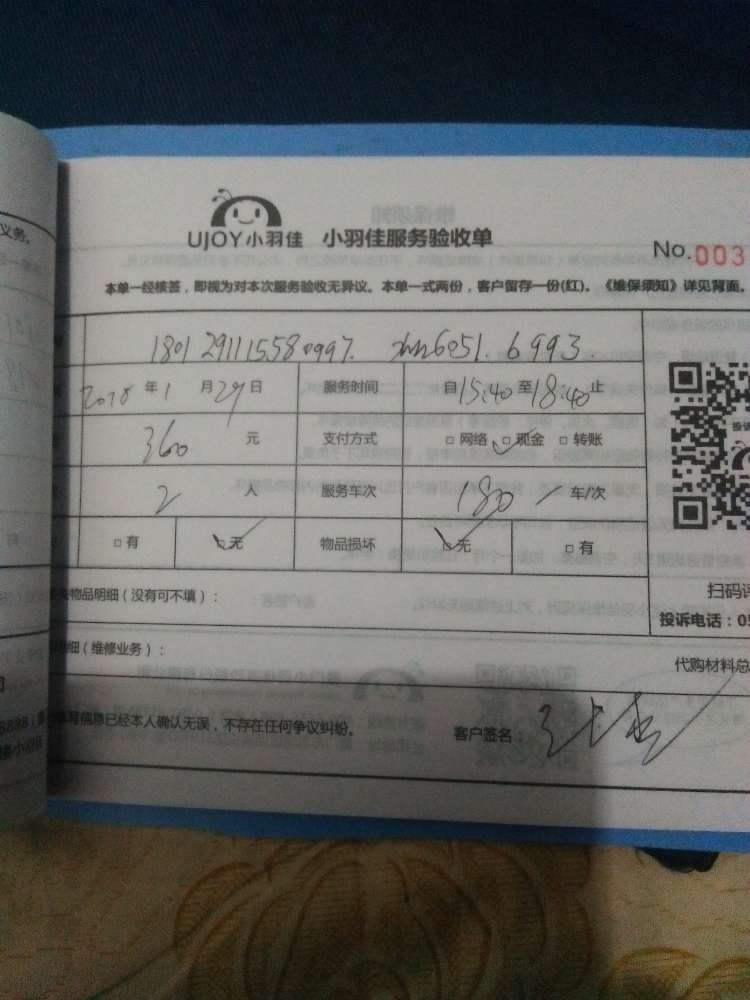 义务。
UJOY小羽佳 小羽佳服务验收单
No.003
本单一经核签，即视为对本次服务验收无异议。本单一式两份，客户留存一份(红)。《维保须知》详见背面。
1801291115580997.
6993.
2018年1月29日 服务时间 自15:40至18:40止
360元 支付方式 □网络 □现金 □转账
2人 服务车次 180 车/次
□有 □无 物品损坏 □无 □有
物品明细（没有可不填）：
扫码评
投诉电话：05
细（维修业务）：
代购材料总
8888
信息已经本人确认无误，不存在任何争议纠纷。 客户签名：